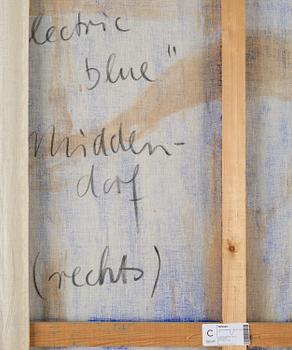 lectric
blue"
Midden-
dorf
(rechts)
C